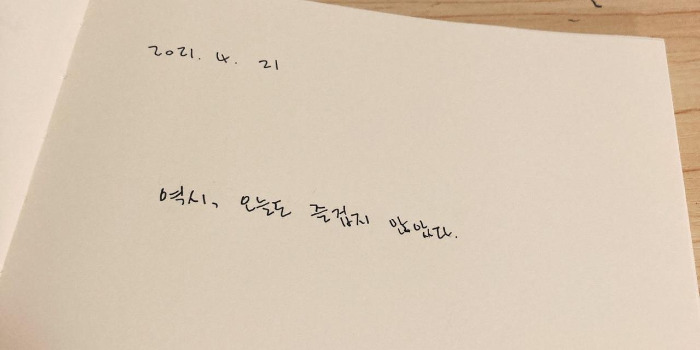 2021. 4. 21
역시, 오늘도 즐겁지 않았다.